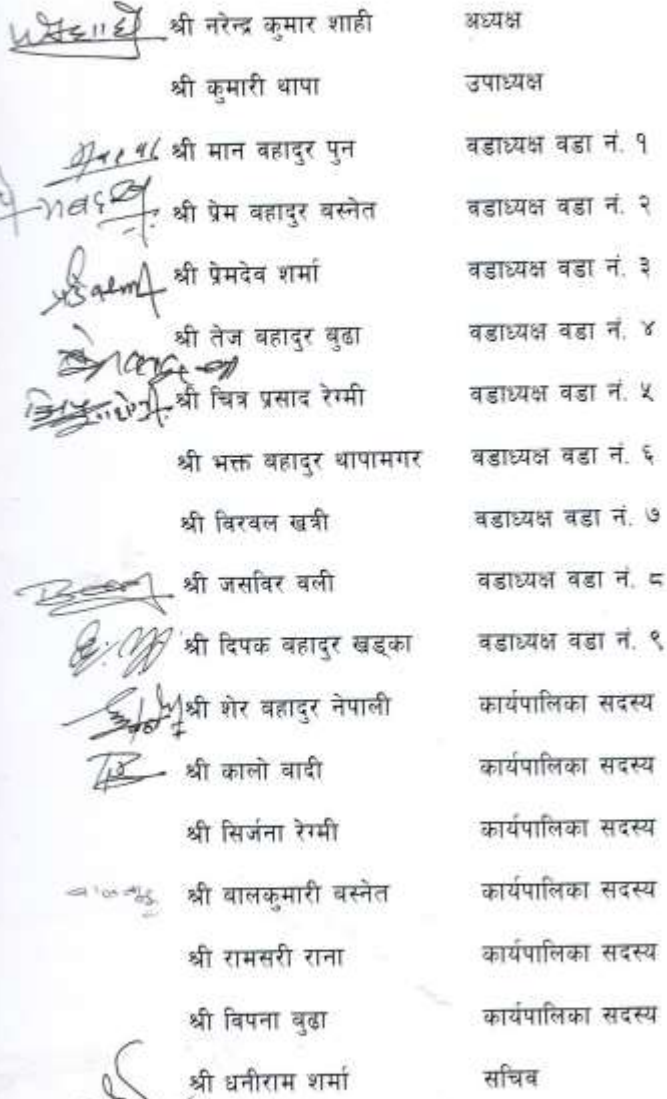 श्री नरेन्द्र कुमार शाही अध्यक्ष
श्री कुमारी थापा उपाध्यक्ष
श्री मान वहादुर पुन वडाध्यक्ष वडा नं. १
श्री प्रेम बहादुर वस्नेत वडाध्यक्ष वडा नं. २
श्री प्रेमदेव शर्मा वडाध्यक्ष वडा नं. ३
श्री तेज बहादुर बुढा वडाध्यक्ष वडा नं. ४
श्री चित्र प्रसाद रेग्मी वडाध्यक्ष वडा नं. ५
श्री भक्त बहादुर थापामगर वडाध्यक्ष वडा नं. ६
श्री विरवल खत्री वडाध्यक्ष वडा नं. ७
श्री जसविर वली वडाध्यक्ष वडा नं. ८
श्री दिपक वहादुर खड्का वडाध्यक्ष वडा नं. ९
श्री शेर वहादुर नेपाली कार्यपालिका सदस्य
श्री कालो वादी कार्यपालिका सदस्य
श्री सिर्जना रेग्मी कार्यपालिका सदस्य
श्री बालकुमारी वस्नेत कार्यपालिका सदस्य
श्री रामसरी राना कार्यपालिका सदस्य
श्री विपना बुढा कार्यपालिका सदस्य
श्री धनीराम शर्मा सचिव